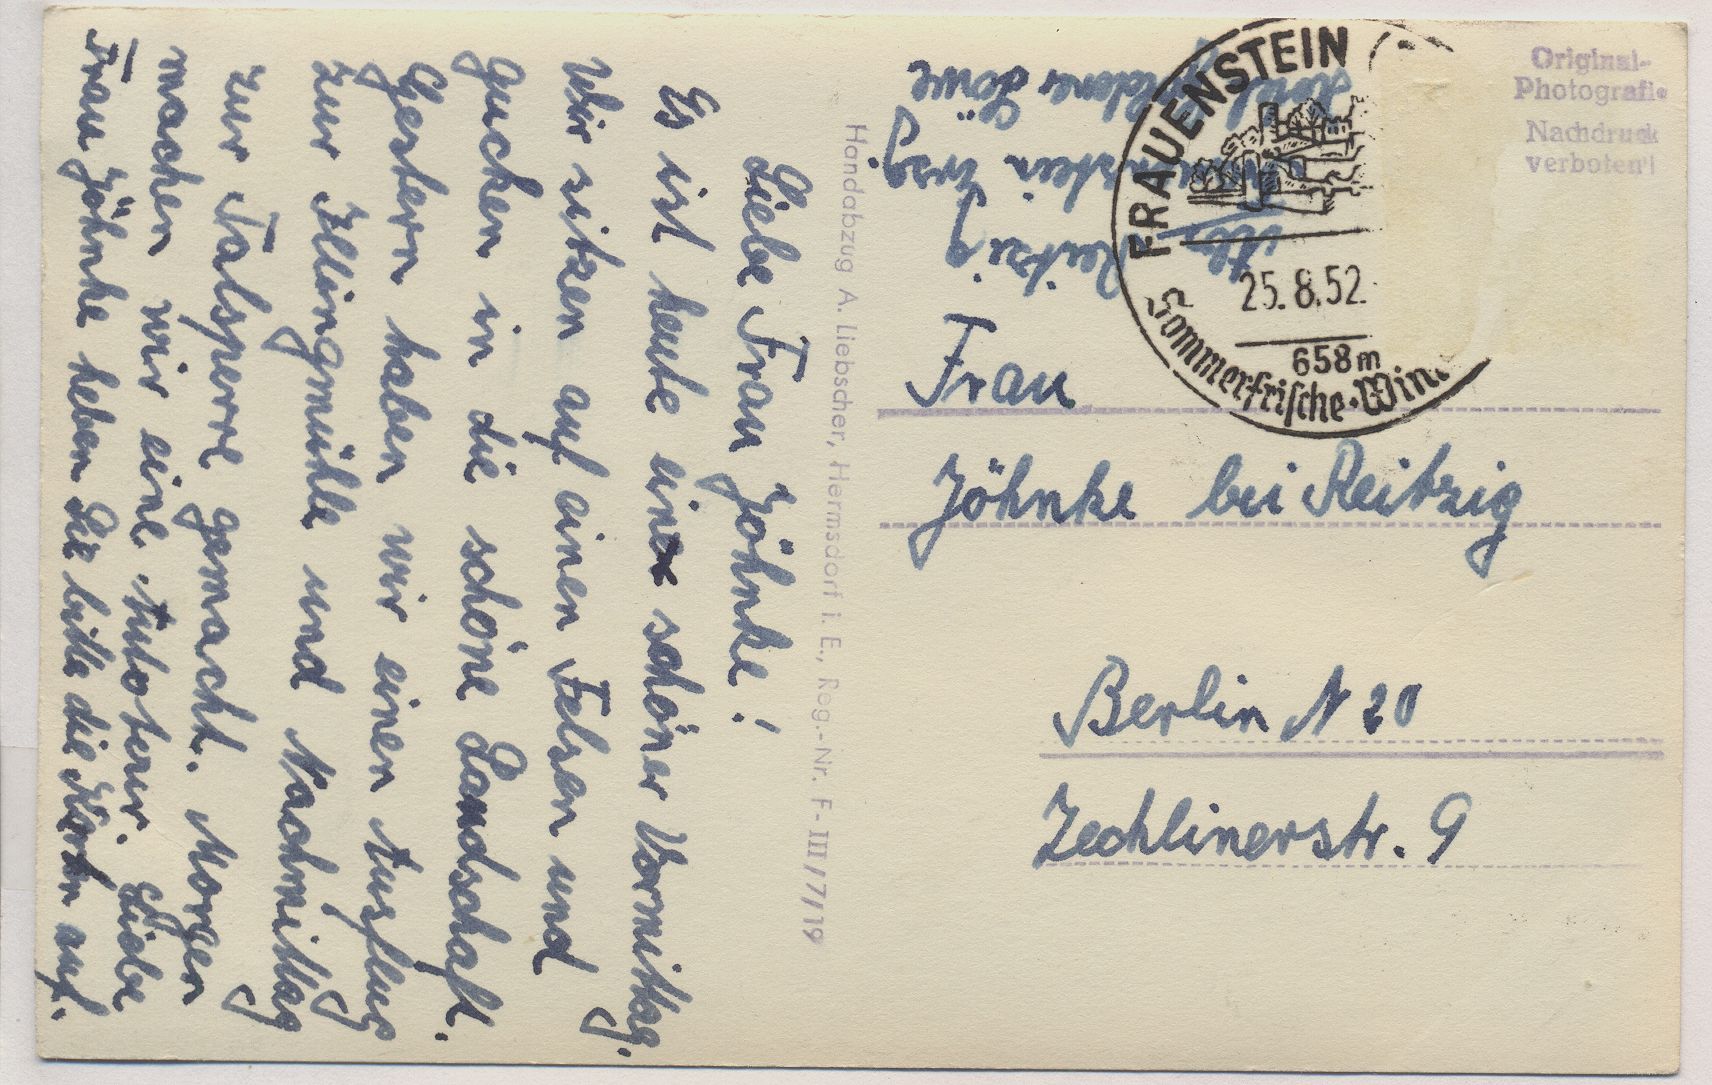 Liebe Frau Jöhnke!
Es ist heute ein schöner Vormittag.
Wir sitzen auf einen Felsen und
gucken in die schöne Landschaft.
Gestern haben wir einen Ausflug
zur Illingmühle und Nachmittag
zur Talsperre gemacht. Morgen
machen wir eine Autotour. Liebe
Frau Jöhnke heben Sie bitte die Karten auf.
Handabzug A. Liebscher, Hermsdorf i. E., Reg.-Nr. F-III/7/19
Reitzig
Erzg
Hotel Goldener Löwe
FRAUENSTEIN
25.8.52
658m
Sommerfrische
Original-
Photografie
Nachdruck
verboten!
Frau
Jöhnke bei Reitzig
Berlin N 20
Zechlinerstr. 9